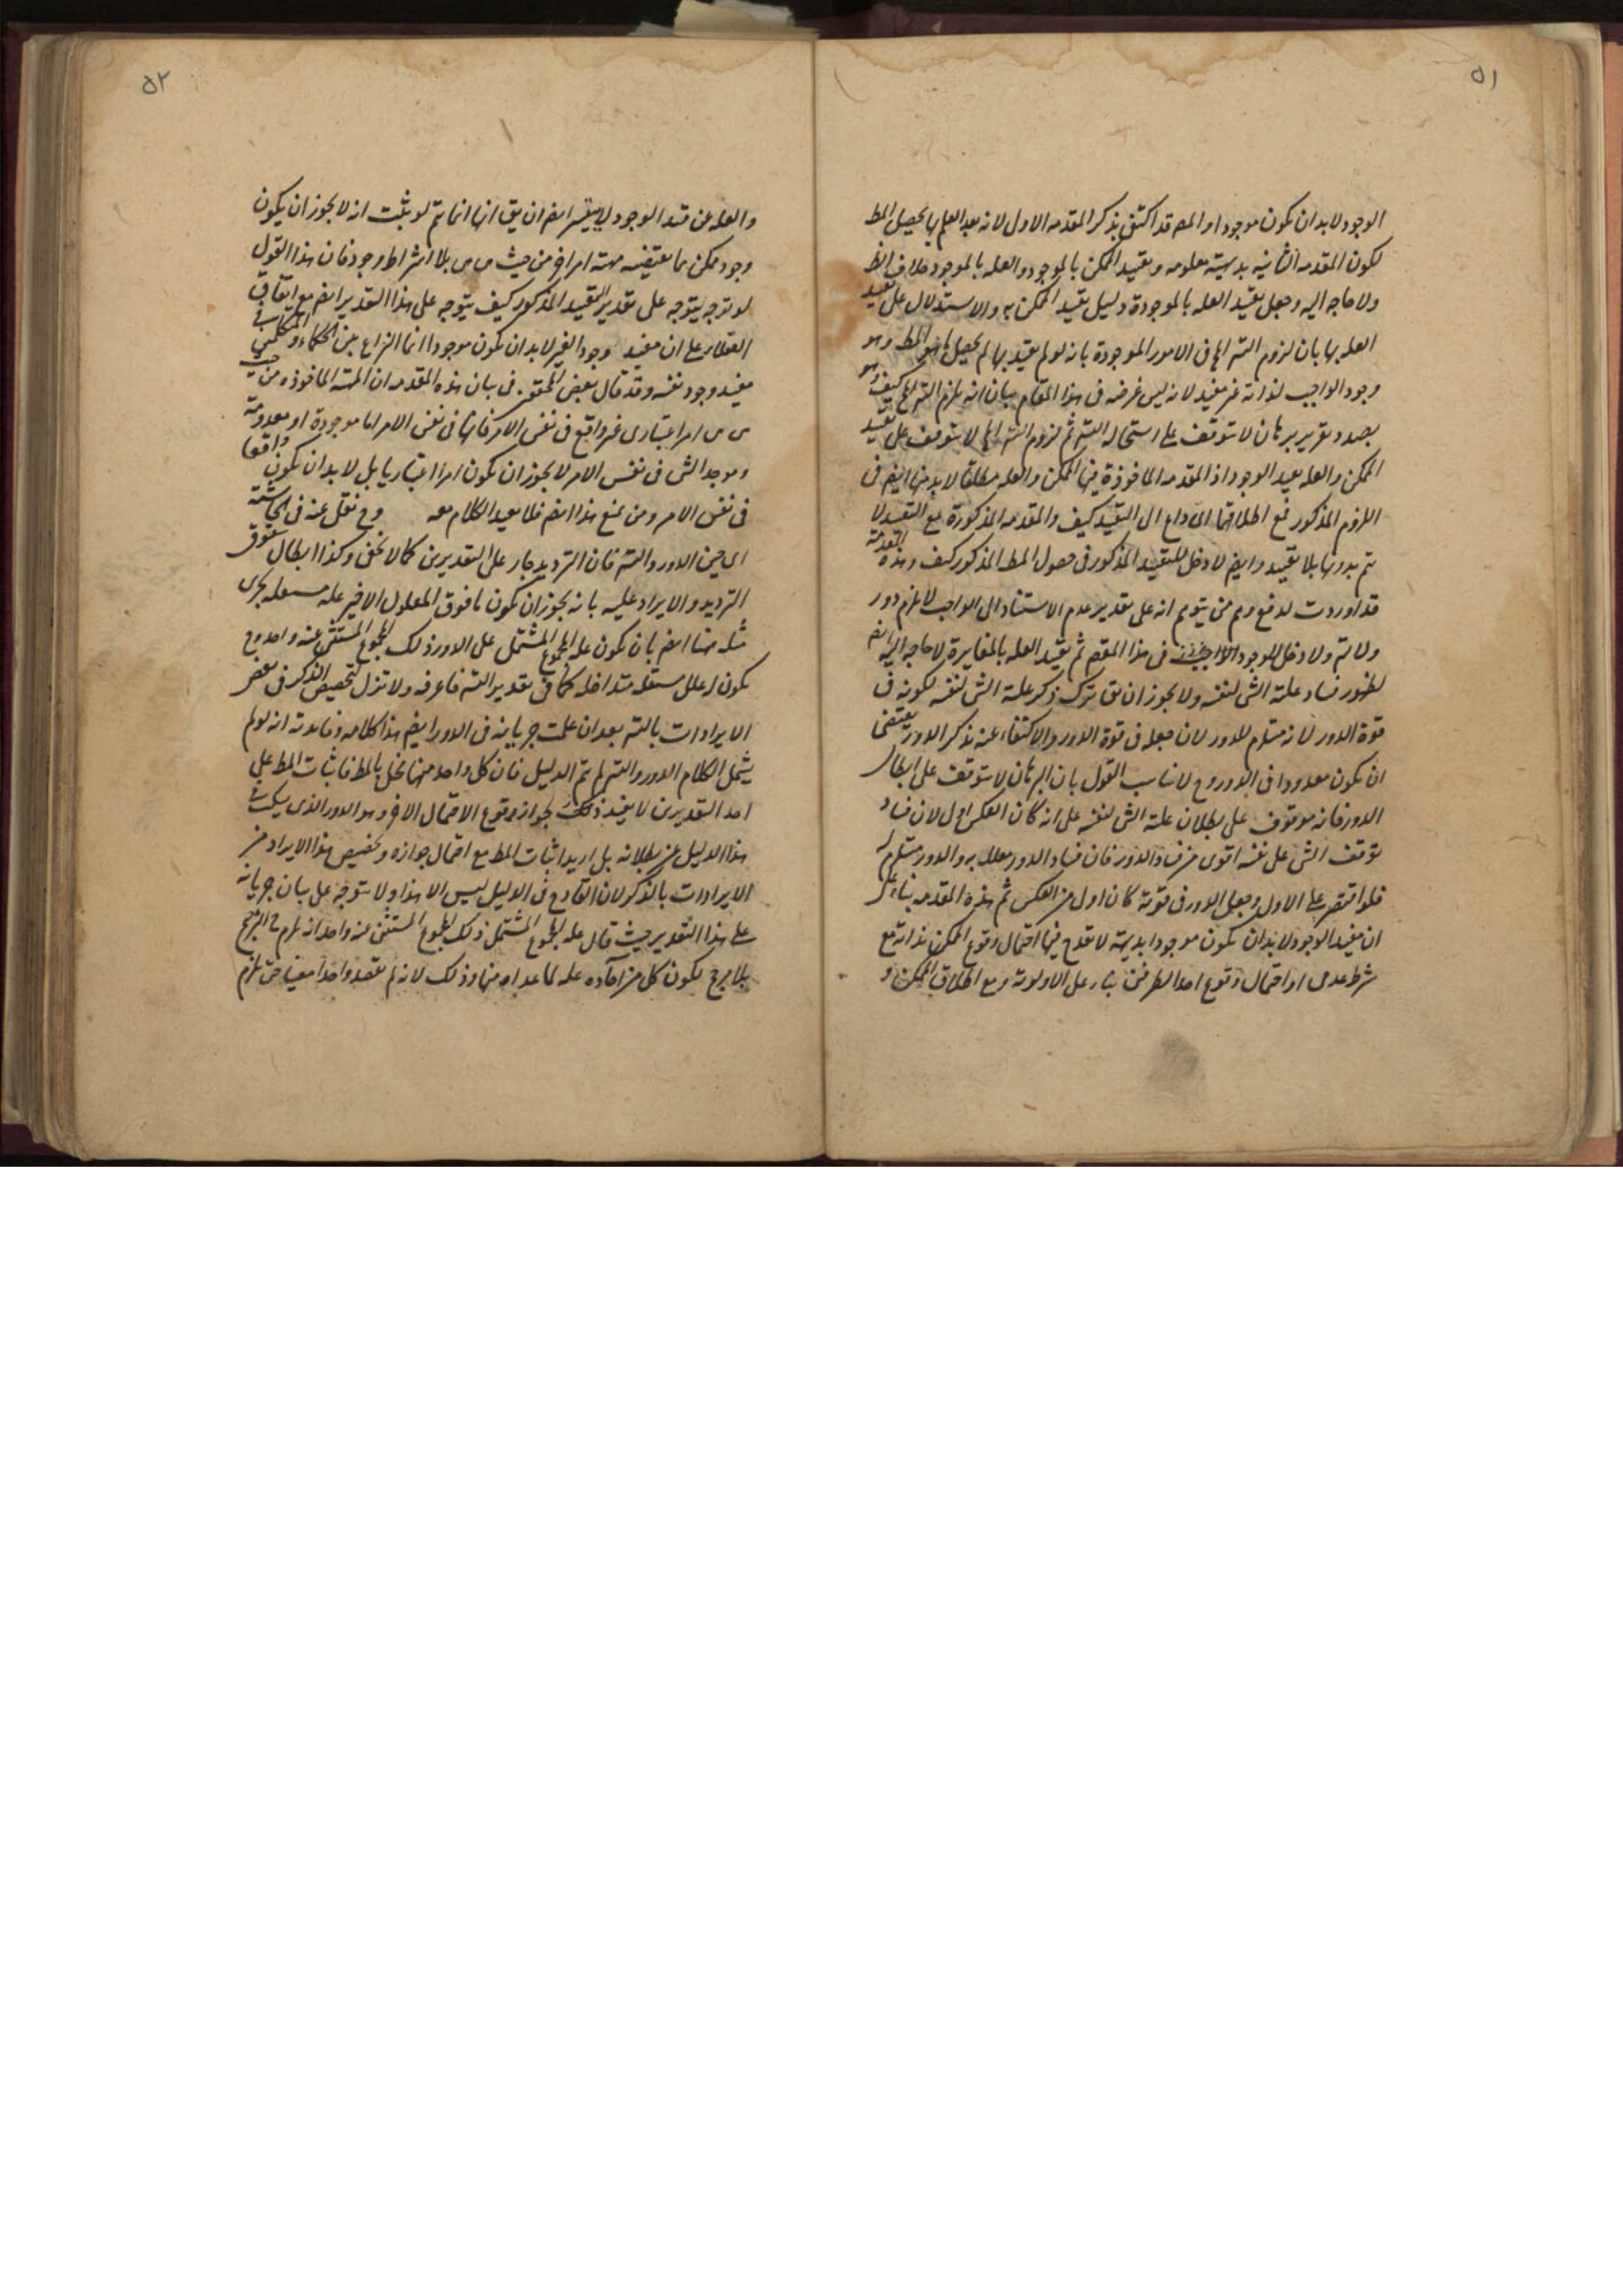 ٥١
الوجود لابد ان يكون موجودا و المصـ قد اكتفى بذكر المقدمه الاولى لانه بعد العلم بها يحصل المط
لكون المقدمه الثانيه بديهية معلومه و تقييد الممكن بالموجود و العله بالموجود خلاف الظ
ولا حاجه اليه وجعل تقييد العله بالموجودة دليل تقييد الممكن به والاستدلال على تقييد
العله بها بان لزوم التسـ انما فى الامور الموجودة بانه لو لم يقيد بها لم يحصل ما هو المط وهو
وجود الواجب لذاته غير مفيد لانه ليس غرضه فى هذا المقام بيان انه يلزم التسـ المح كيف وهو
بصدد تقرير برهان لا يتوقف على استحاله التسـ ثم لزوم التسـ المح لا يتوقف على تقييد
الممكن والعله بقيد الوجود اذ المقدمه الماخوذة فيها الممكن والعله مطلقا لابد منها ايضا فى
اللزوم المذكور فمع اطلاقها اى داع الى التقييد كيف والمقدمه المذكورة مع التقييد لا
تتم بدونها بلا تقييد وايضا لا دخل للتقييد المذكور فى حصول المط المذكور كيف وهذه المقدمة
قد اوردت لدفع وهم من يتوهم انه على تقدير عدم الاستناد الى الواجب لا يلزم دور
ولا تسـ ولا دخل للوجود فى هذا المقصـ ثم تقييد العله بالمغايرة لا حاجه اليه ايضا
لظهور فساد علية الشى لنفسه ولا يجوز ان يق ترك ذكر علية الشى لنفسه لكونه فى
قوة الدور لانه مستلزم للدور لان جعله فى قوة الدور والاكتفاء عنه بذكر الدور يقتضى
ان يكون معدودا فى الدور وح لا يناسب القول بان البرهان لا يتوقف على ابطال
الدور فانه موقوف على بطلان علية الشى لنفسه على انه كان العكس اولى لان فساد
توقف الشى على نفسه اقوى من فساد الدور فان فساد الدور معلل به والدور مستلزم له
فلو اقتصر على الاول وجعل الدور فى قوته كان اولى من العكس ثم هذه المقدمه بناء على
ان مفيد الوجود لابد ان يكون موجودا بديهية لا يقدح فيها احتمال وقوع الممكن بذاته مع
شرط عدمى او احتمال وقوع احد الطرفين بناء على الاولوية ومع اطلاق الممكن و
٥٢
والعله عن قيد الوجود ايضا ان يق انها انما تتم لو ثبت انه لا يجوز ان يكون
وجود ممكن مما يقتضيه مهية امر اخر من حيث هى هى بلا اشتراط وجود فان هذا القول
لو توجه يتوجه على تقدير التقييد المذكور كيف يتوجه على هذا التقدير ايضا مع اتفاق
العقلاء على ان مفيد وجود الغير لابد ان يكون موجودا انما النزاع بين الحكماء و المتكلمين فى
مفيد وجود نفسه وقد قال بعض المحققين فى بيان هذه المقدمه ان المهية الماخوذه من حيث
هى هى امر اعتبارى غير واقع فى نفس الامر فانها فى نفس الامر اما موجودة او معدومة
وموجد الشى فى نفس الامر لا يجوز ان يكون امرا اعتباريا بل لابد ان يكون واقعا
فى نفس الامر ومن يمنع هذا ايضا فلا يعيد الكلام معه وح نقل عنه فى الحاشية
اى حين الدور والتسـ فان الترديد جار على التقديرين كما لا يخفى وكذا ابطال شقوق
الترديد والايراد عليه بانه يجوز ان يكون ما فوق المعلول الاخير علة مستقله يجرى
مثله هنا ايضا بان يكون علة المجموع المشتمل على الدور ذلك المجموع المستثنى عنه واحد وح
يكون له علل مستقله متداخله كما فى تقدير التسـ فاعرفه ولا تزل لتخصيص الذكر فى بعض
الايرادات بالتسـ بعد ان علمت جريانه فى الدور ايضا هذا كلامه وفائدته انه لو لم
يشمل الكلام الدور والتسـ لم تتم الدليل فان كل واحد منهما مخل بالمط فاثبات المط على
احد التقديرين لا يفيد ذلك لجواز وقوع الاحتمال الاخر وهو الدور الذى سكت فى
هذا الدليل عن بطلانه بل اريد اثبات المط مع احتمال جوازه وتخصيص هذا الايراد من
الايرادات بالذكر لان القادح فى الدليل ليس الا هذا ولا يتوجه على بيان جريانه
على هذا التقدير حيث قال علة المجموع المشتمل ذلك المجموع المستثنى منه واحد انه يلزم ح الترجيح
بلا مرجح لكون كل من آحاده علة لما عداه منها وذلك لانه لم يقصد واحدا معينا حتى يلزم